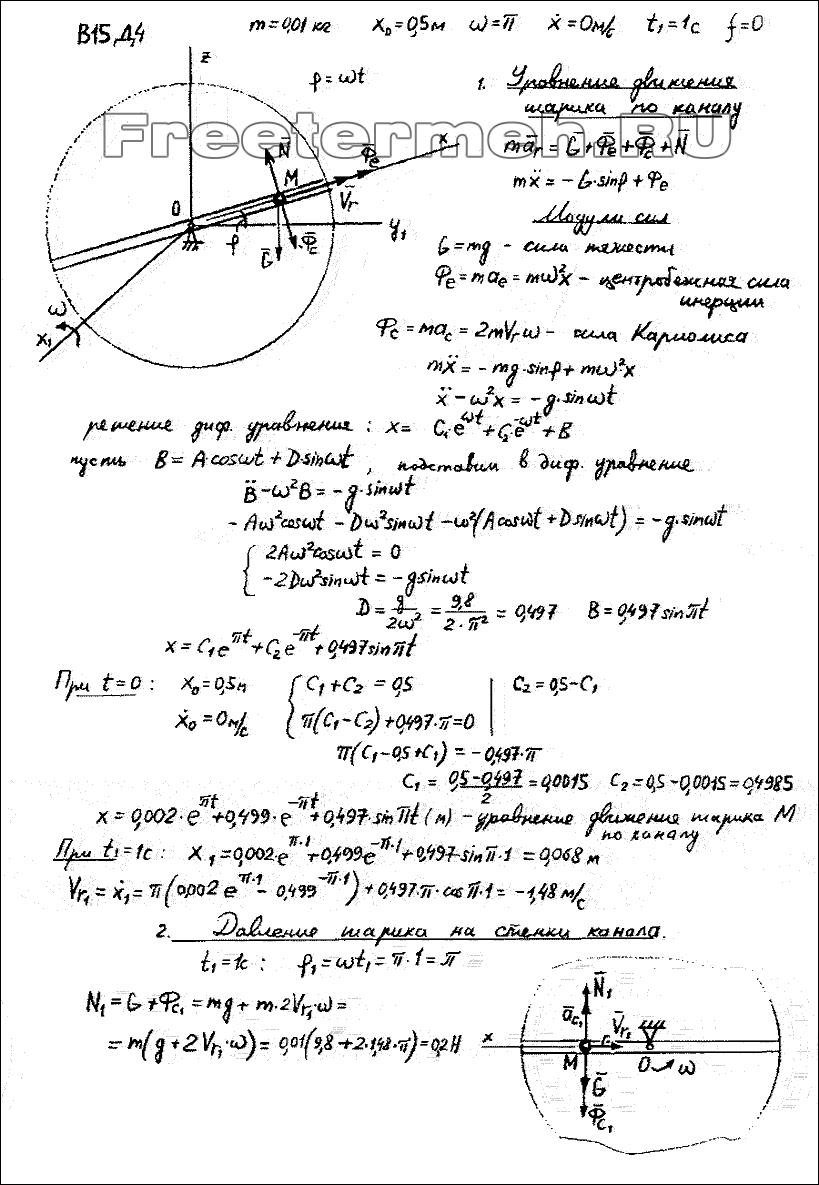 В15,Д4
m=0,01 кг x₀=0,5м ω=π ẋ=0м/с t₁=1с f=0
Freetermeh RU
z
φ=ωt
N̄
Φ̄e
x
M
V̄r
O
φ
Ḡ
Φ̄c
y₁
ω
x₁
1. Уравнение движения
шарика по каналу
mār=Ḡ+Φ̄e+Φ̄c+N̄
mẍ=-G·sinφ+Φe
Модули сил
G=mg - сила тяжести
Φe=mae=mω²x - центробежная сила
инерции
Φc=mac=2mVrω - сила Кариолиса
mẍ=-mg·sinφ+mω²x
ẍ-ω²x=-g·sinωt
решение диф. уравнения: x= C₁·e^ωt+C₂·e^-ωt+B
пусть B=Acosωt+Dsinωt, подставим в диф. уравнение
B̈-ω²B=-g·sinωt
-Aω²cosωt-Dω²sinωt-ω²(Acosωt+Dsinωt)=-g·sinωt
2Aω²cosωt=0
-2Dω²sinωt=-gsinωt
D=g/2ω²=9,8/2·π²=0,497 B=0,497sinπt
x=C₁e^πt+C₂e^-πt+0,497sinπt
При t=0: x₀=0,5м { C₁+C₂=0,5 | C₂=0,5-C₁
ẋ₀=0м/с { π(C₁-C₂)+0,497·π=0
π(C₁-0,5+C₁)=-0,497·π
C₁=0,5-0,497/2=0,0015 C₂=0,5-0,0015=0,4985
x=0,002·e^πt+0,499·e^-πt+0,497sinπt(м)-уравнение движения шарика M
по каналу
При t₁=1с: x₁=0,002e^π·1+0,499e^-π·1+0,497·sinπ·1=0,068м
Vr₁=ẋ₁=π(0,002e^π·1-0,499^-π·1)+0,497·π·cosπ·1=-1,48м/с
2. Давление шарика на стенки канала.
t₁=1с: φ₁=ωt₁=π·1=π
N₁=G+Φc₁=mg+m·2Vr₁·ω=
=m(g+2Vr₁·ω)=0,01(9,8+2·1,48·π)=0,2Н
N̄₁
āc₁
V̄r₁
x
M
O
ω
Ḡ
Φ̄c₁